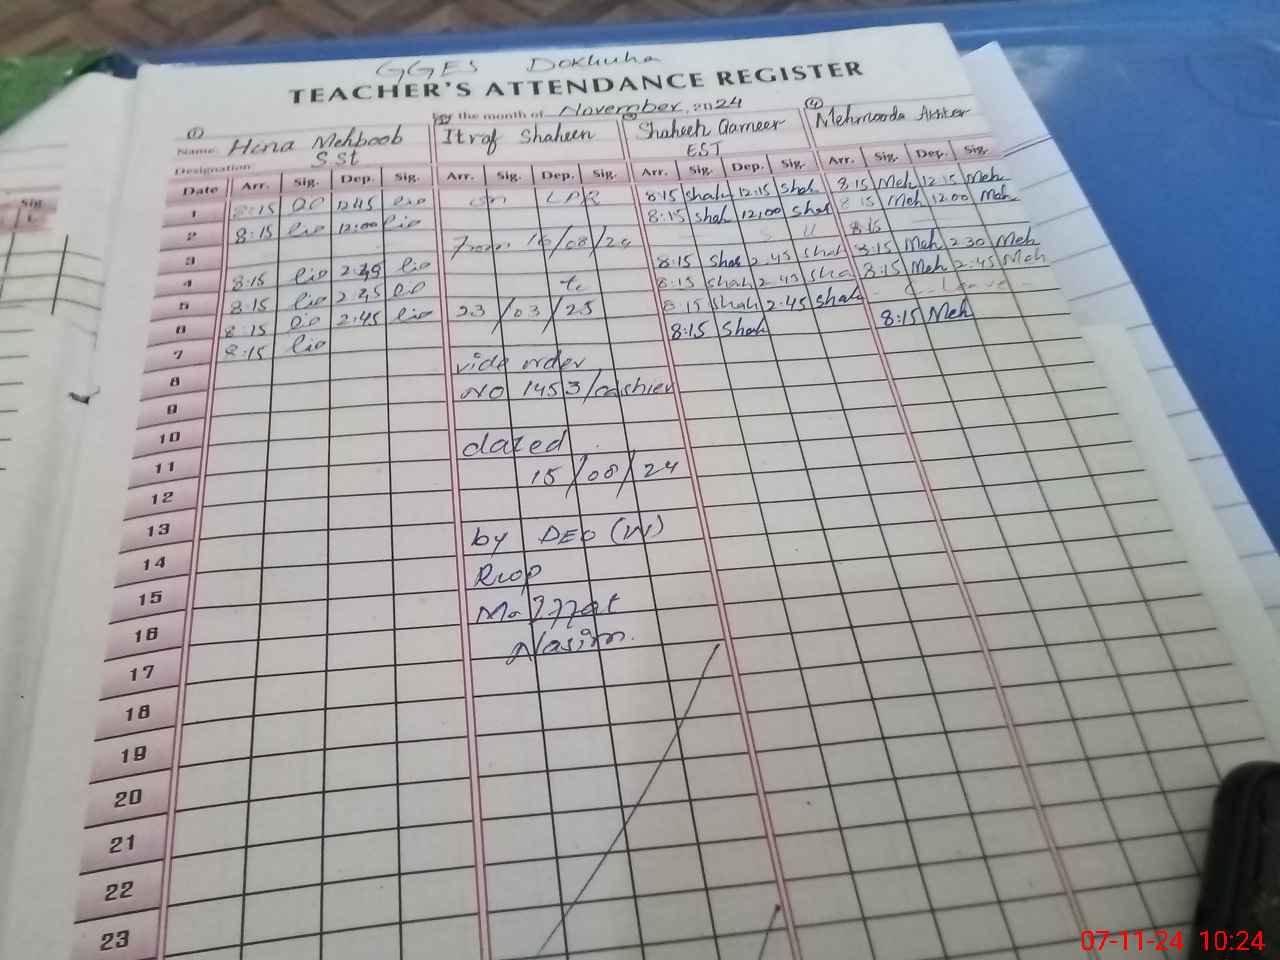 GGES Dokhuha
TEACHER'S ATTENDANCE REGISTER
For the month of November, 2024
① ③ ④
Name. Hina Mehboob Itraf Shaheen Shaheen Qameer Mehmooda Akhter
Designation SSt EST
Date Arr. Sig. Dep. Sig. Arr. Sig. Dep. Sig. Arr. Sig. Dep. Sig. Arr. Sig. Dep. Sig.
1 8:15 1245 on LPR 8:15 Shah 12:15 Shah 8:15 Meh 12:15 Meh
2 8:15 12:00 8:15 Shah 12:00 Shah 8:15 Meh 12:00 Meh
3 From 16/08/24 8:15
4 8:15 8:15 Shah 2:45 Shah 8:15 Meh 2:30 Meh
5 8:15 to 8:15 Shah 2:45 Sha 8:15 Meh 2:45 Meh
6 8:15 2:45 23/03/25 8:15 Shah 2:45 Shah
7 8:15 8:15 Shah 8:15 Meh
8 vide order
9 NO 1453/cashier
10
11 dated
12 15/08/24
13
14 by DEO (W)
15 Rwp
16
17 Nasim.
18
19
20
21
22
23
Sig.
07-11-24 10:24